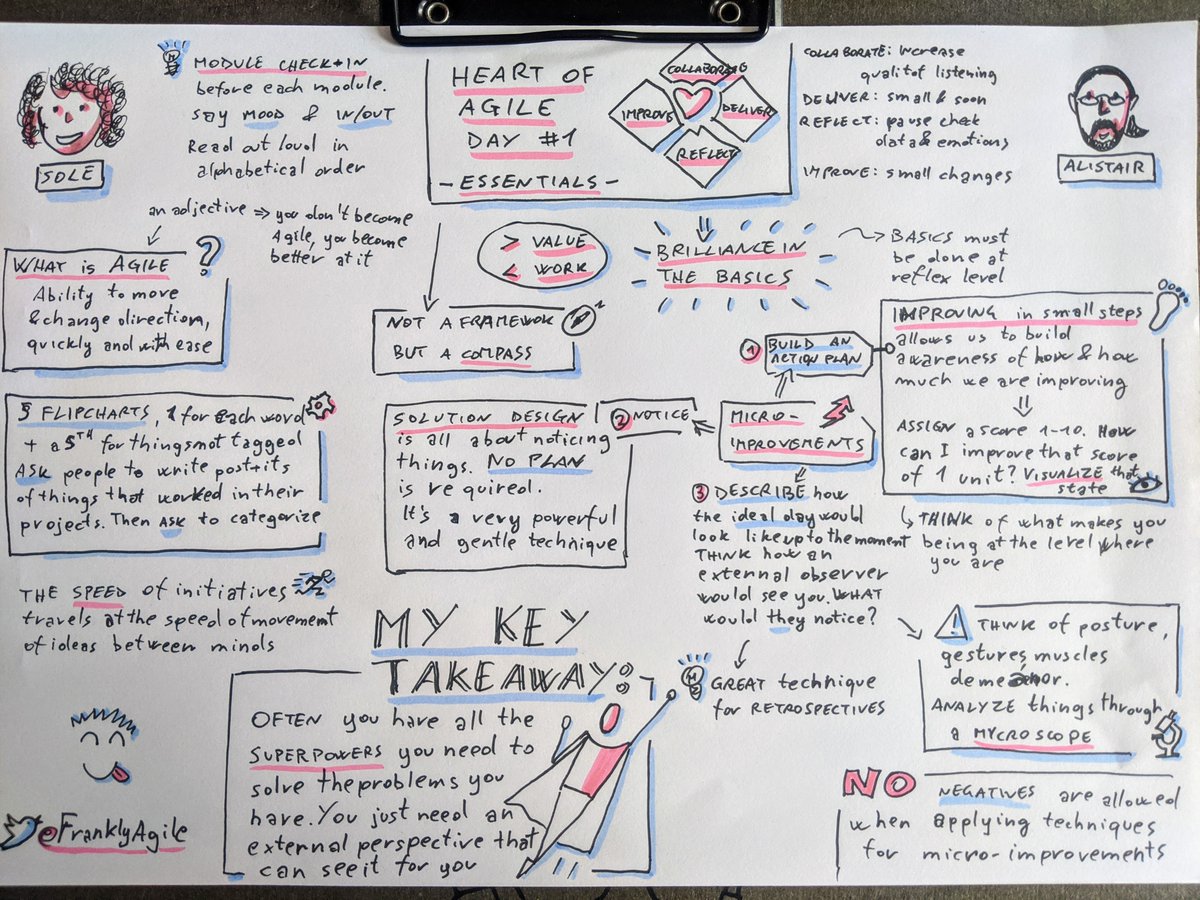 MODULE CHECK-IN
before each module.
say MOOD & IN/OUT
Read out loud in
alphabetical order
SOLE
HEART OF
AGILE
DAY #1
-ESSENTIALS-
COLLABORATE
IMPROVE
DELIVER
REFLECT
COLLABORATE: Increase
quality of listening
DELIVER: small & soon
REFLECT: pause check
data & emotions
IMPROVE: small changes
ALISTAIR
an adjective => you don't become
Agile, you become
better at it
WHAT is AGILE ?
Ability to move
& change direction,
quickly and with ease
> VALUE
< WORK
BRILLIANCE IN
THE BASICS
BASICS must
be done at
reflex level
NOT A FRAMEWORK
BUT A COMPASS
5 FLIPCHARTS, 1 for each word
+ a 5TH for things not tagged
ASK people to write post-its
of things that worked in their
projects. Then ASK to categorize
SOLUTION DESIGN
is all about noticing
things. NO PLAN
is required.
It's a very powerful
and gentle technique
MICRO-
IMPROVEMENTS
1 BUILD AN
ACTION PLAN
IMPROVING in small steps
allows us to build
awareness of how & how
much we are improving
ASSIGN a score 1-10. How
can I improve that score
of 1 unit? VISUALIZE that
state
THINK of what makes you
being at the level where
you are
2 NOTICE
3 DESCRIBE how
the ideal day would
look like up to the moment
THINK how an
external observer
would see you. WHAT
would they notice?
GREAT technique
for RETROSPECTIVES
! THINK of posture,
gestures, muscles
demeanor.
ANALYZE things through
a MYCROSCOPE
NO NEGATIVES are allowed
when applying techniques
for micro-improvements
THE SPEED of initiatives
travels at the speed of movement
of ideas between minds
MY KEY
TAKEAWAY:
OFTEN you have all the
SUPERPOWERS you need to
solve the problems you
have. You just need an
external perspective that
can see it for you
@FranklyAgile